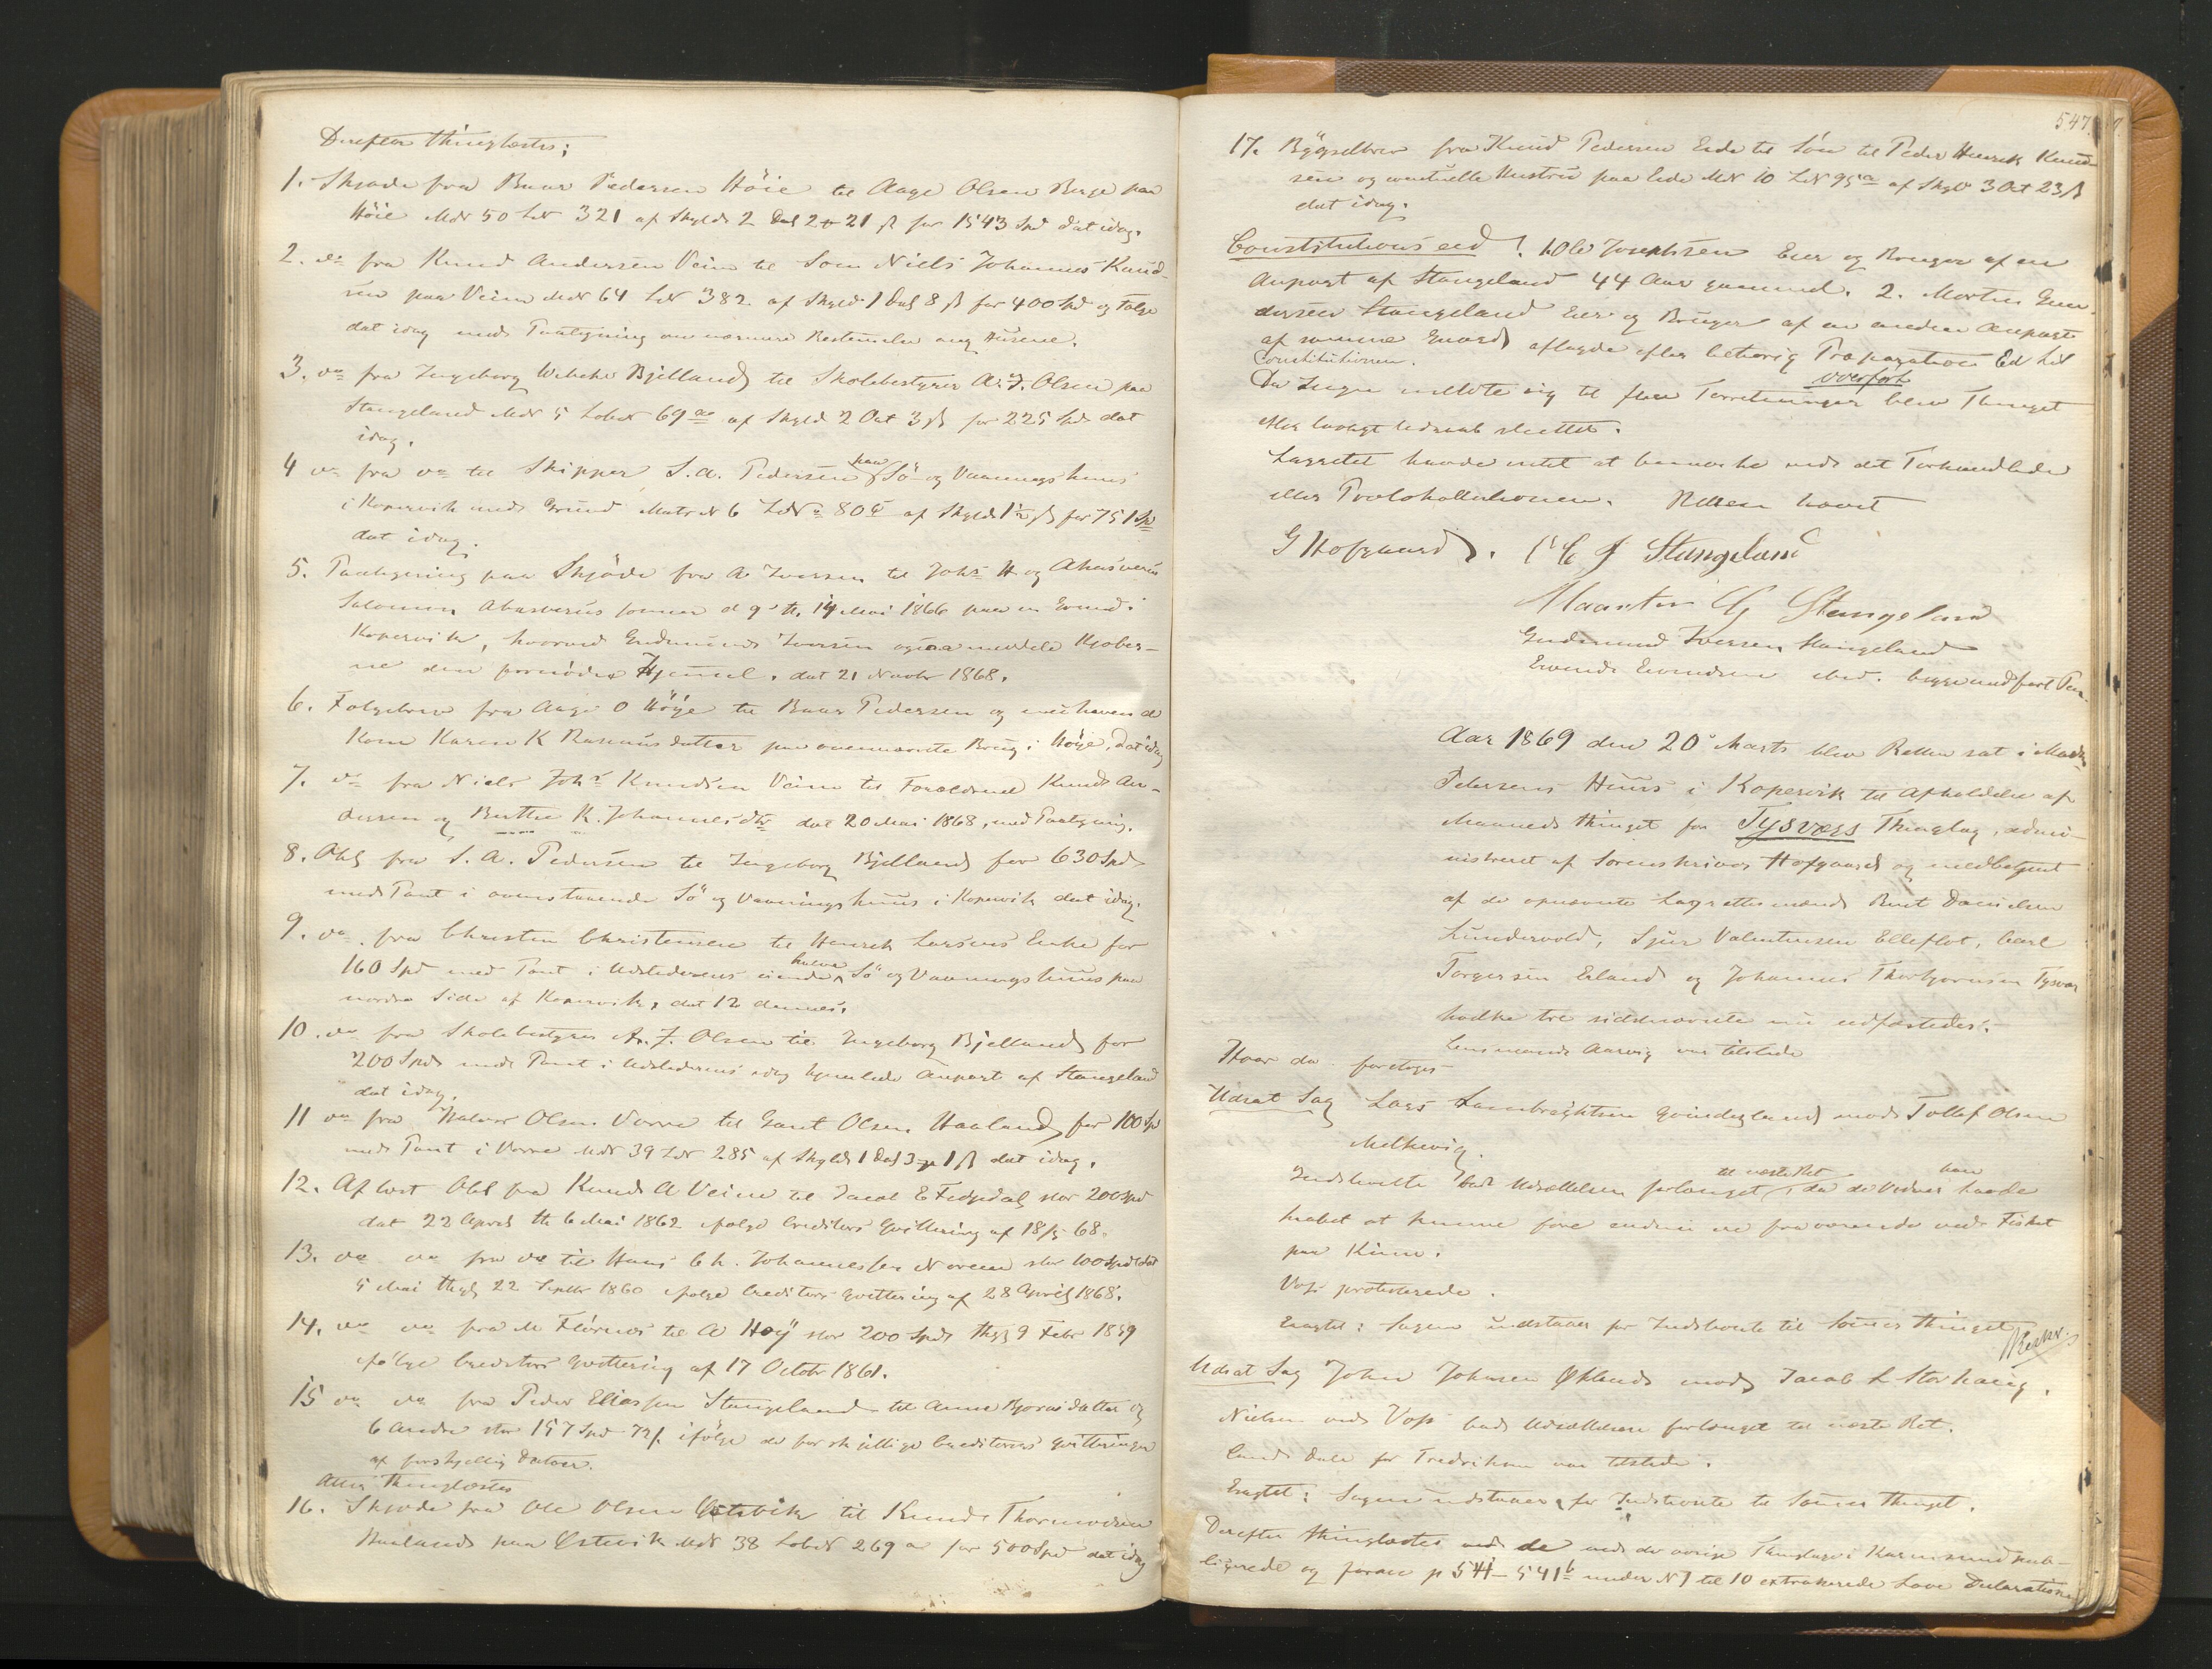 Derefter thinglæstes;
1. Skjøde fra Baar Pedersen Höie til Aage Olsen Berge paa
Höie MN 50 LN 321 af Skyld 2 Dal 2 # 21 ß for 1543 Spd dat idag.
2. do fra Knud Andersen Veim til Søn Niels Johannes Knud-
sen paa Veim MN 64 LN 382 af Skyld 1 Dal 8 ß for 400 Spd og Følge
dat idag med Paategning om nærmere Bestemmelse ang Husene.
3. do fra Ingeborg Bjelland til Skolebestyrer A. J. Olsen paa
Stangeland MN 5 LobN 69 af Skyld 2 Ort 3 ß for 225 Spd dat
idag.
4 do fra do til Skipper S. A. Pedersen paa Sö- og Vaaningshuus
i Kopervik med Grund MatrN 6 LN 80 af Skyld 1 ß for 751 Spd
dat idag.
5. Paategning paa Skjöde fra A Iversen til Johs H og Ahasverus
Salomon Ahasverus sønner d 9 th. 14 Mai 1866 paa en Grund i
Kopervik, hvorved Gudmund Iversen ogsaa meddele Kjøber-
ne den fornødne Hjemmel. dat 21 Novbr 1868.
6. Følgebrev fra Aage O Höÿe til Baar Pedersen og nuhavende
Kone Karen K Rasmusdatter paa ovennævnte Brug i Höÿe, dat idag
7. do fra Niels Johs Knudsen Veim til Forældrene Knud An-
dersen og Berthe K. Johannesdtr dat 20 Mai 1868, med Paategning.
8. Obl fra S. A. Pedersen til Ingeborg Bjelland for 630 Spd
med Pant i ovenstaaende Sö og Vaaningshuus i Kopervik dat idag.
9. do fra Christen Christensen til Henrik Larsens Enke for
160 Spd med Pant i Udstederens eiende halve Sö og Vaaningshuus paa
nordre Side af Kopervik, dat 12 dennes.
10. do fra Skolebestyrer A. J. Olsen til Ingeborg Bjelland for
200 Spd med Pant i Udstederens idag hjemlede Anpart af Stangeland
dat idag.
11 do fra Halvor Olsen Vorre til Gaut Olsen Haaland for 100 Spd
med Pant i Vorre MN 39 LN 285 af Skyld 1 Dal 3 # 1 ß dat idag.
12. Aflæst Obl fra Knud A Veim til Jacob E stor 200 Spd
dat 22 April th 6 Mai 1862 ifølge Creditors Qvittering af 18/5 68.
13. do do fra do til Hans Ch. Johannessen stor 100 Spd dat
5 Mai thgl 22 Septbr 1860 ifølge Creditors Qvittering af 28 April 1868.
14. do do fra M til A Höÿ stor 200 Spd thgl 9 Febr 1859
ifölge Creditors Qvittering af 17 Octobr 1861.
15 do do fra Peder Eliassen Stangeland til Anne Bjørnsdatter og
6 Andre stor 157 Spd 72 ß ifölge de forskjellige Creditorers Qvitteringer
af forskjellig Datoer.
Atter thinglæstes
16. Skjøde fra Ole Olsen Østevik til Knud Thormodsen
Haaland paa Østevik MN 38 LobN 269 a for 500 Spd dat idag
547.
17. Bÿgselbrev fra Knud Pedersen Eide til Sön Peder Henrik Knud-
sen og eventuelle Hustru paa Eide MN 10 LN 95 a af Skyld 3 Ort 23 ß
dat idag.
Constitutions eed! 1. Ole Josephsen Eier og Bruger af en
Anpart af Stangeland 44 Aar gammel. 2. Morten Gun-
dersen Stangeland Eier og Bruger af en anden Anpart
af samme Gaard aflagde efter behørig Præparation Ed til
Constitutionen.
Da Ingen meldte sig til flere Forretninger overført blev Thinget
efter lovligt Udraab sluttet.
Lagrettet havde intet at bemærke ved det Forhandlede
eller Protokollationen. Retten hævet
G Hofgaard. O J Stangeland
Maarten G Stangeland
Gudmund Iversen Stangeland
Evend Evendsen ibid. begge med ført Pen.
Aar 1869 den 20 Marts blev Retten sat i
Petersens Huus i Kopervik til Afholdelse af
Maanedsthinget for Tysværs Thinglag, admi-
nistreret af Sorenskriver Hofgaard og medbetjent
af de opnævnte Lagrettesmænd Danielsen
Lundervold, Sjur Valentinsen Elleflot, Carl
Torgersen Erland og Johannes Thorbjørnsen Tysvær
hvilke tre sidstnævnte nu edfæstedes.
Lensmand Aarvig var tilstede
Hvor da foretoges
Udsat Sag Lars Lambregtsen Qvindesland mod Tollef Olsen
Melkevig.
Indstevnte bad Udsættelsen forlænget til næste Ret da de Vidner han havde
haabet at kunne føre endnu ere fraværende ved Fisket
paa Kinn.
Voss protesterede.
Eragtet: Sagen udstaaer for Indstevnte til Sommerthinget
Udsat Sag John Johnsen Økland mod Jacob L Storhaug.
Nielsen ved Voss bad Udsættelsen forlænget til næste Ret.
Cand. Dale for Fredriksen var tilstede.
Eragtet: Sagen udstaaer for Indstevnte til Sommerthinget.
Derefter thinglæstes ved de ved de øvrige Thinglage i Karmsund pub-
licerede og foran p 541–541 b under N 1 til 10 extraherede Love Declarationer